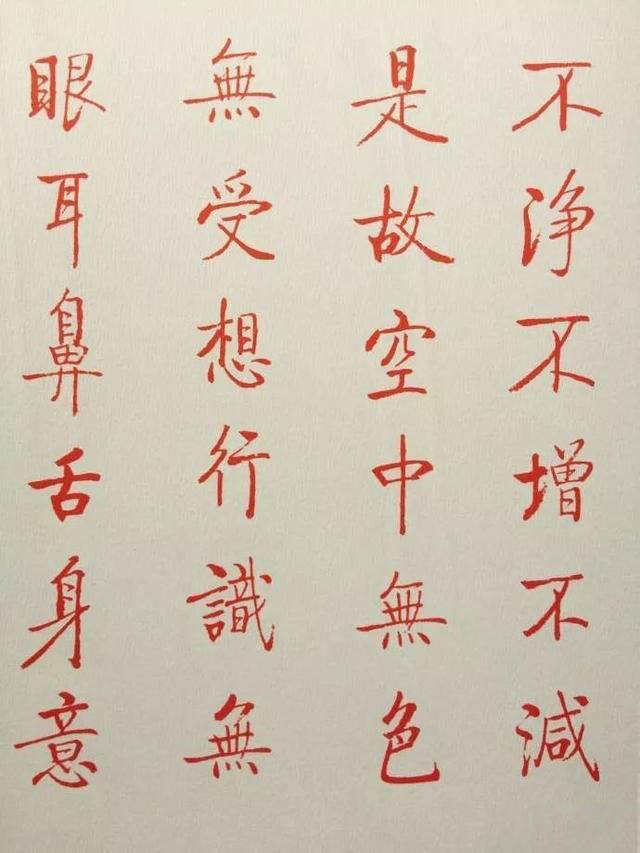 不浄不增不減
是故空中無色
無受想行識無
眼耳鼻舌身意